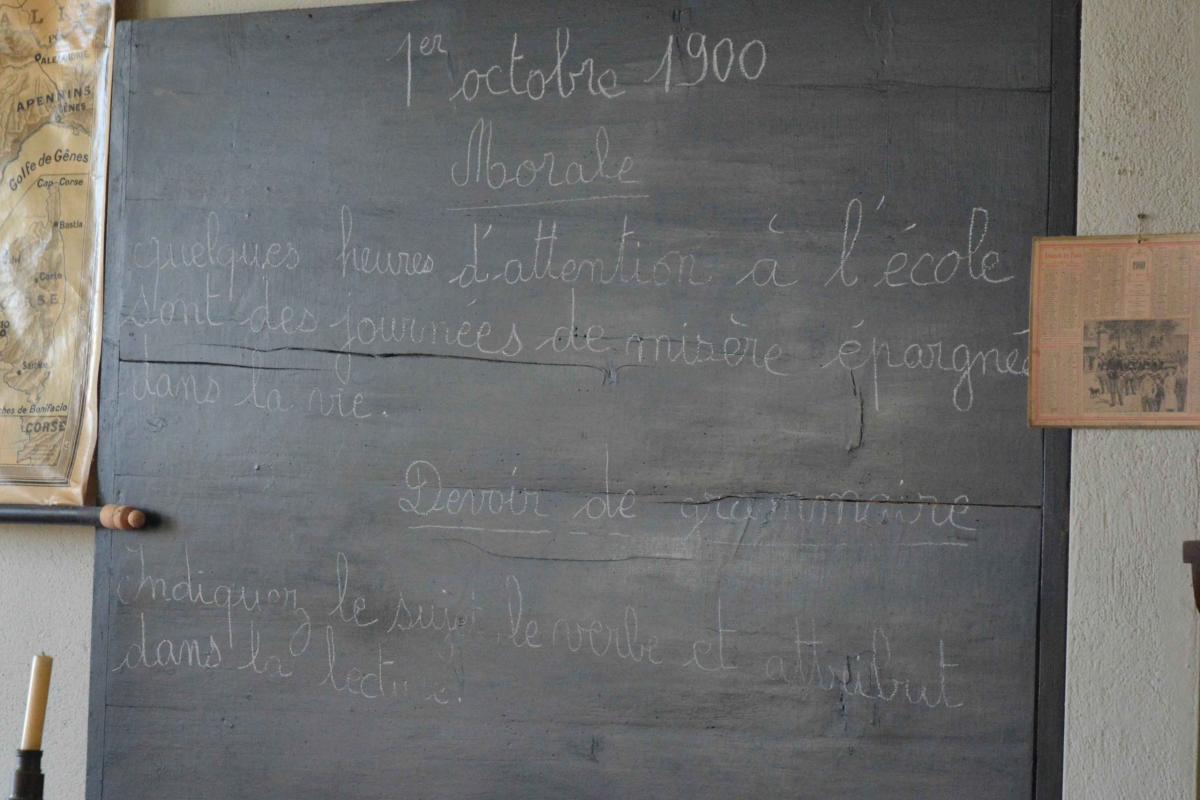 1er octobre 1900
Morale
quelques heures d'attention à l'école
sont des journées de misère épargnée
dans la vie.
Devoir de grammaire
Indiquez le sujet le verbe et attribut
dans la lecture.
L I
ALEXANDRIE
APENNINS
GÊNES
Golfe de Gênes
Cap-Corse
Bastia
Corte
CORSE
ches de Bonifacio
CORSE
1900